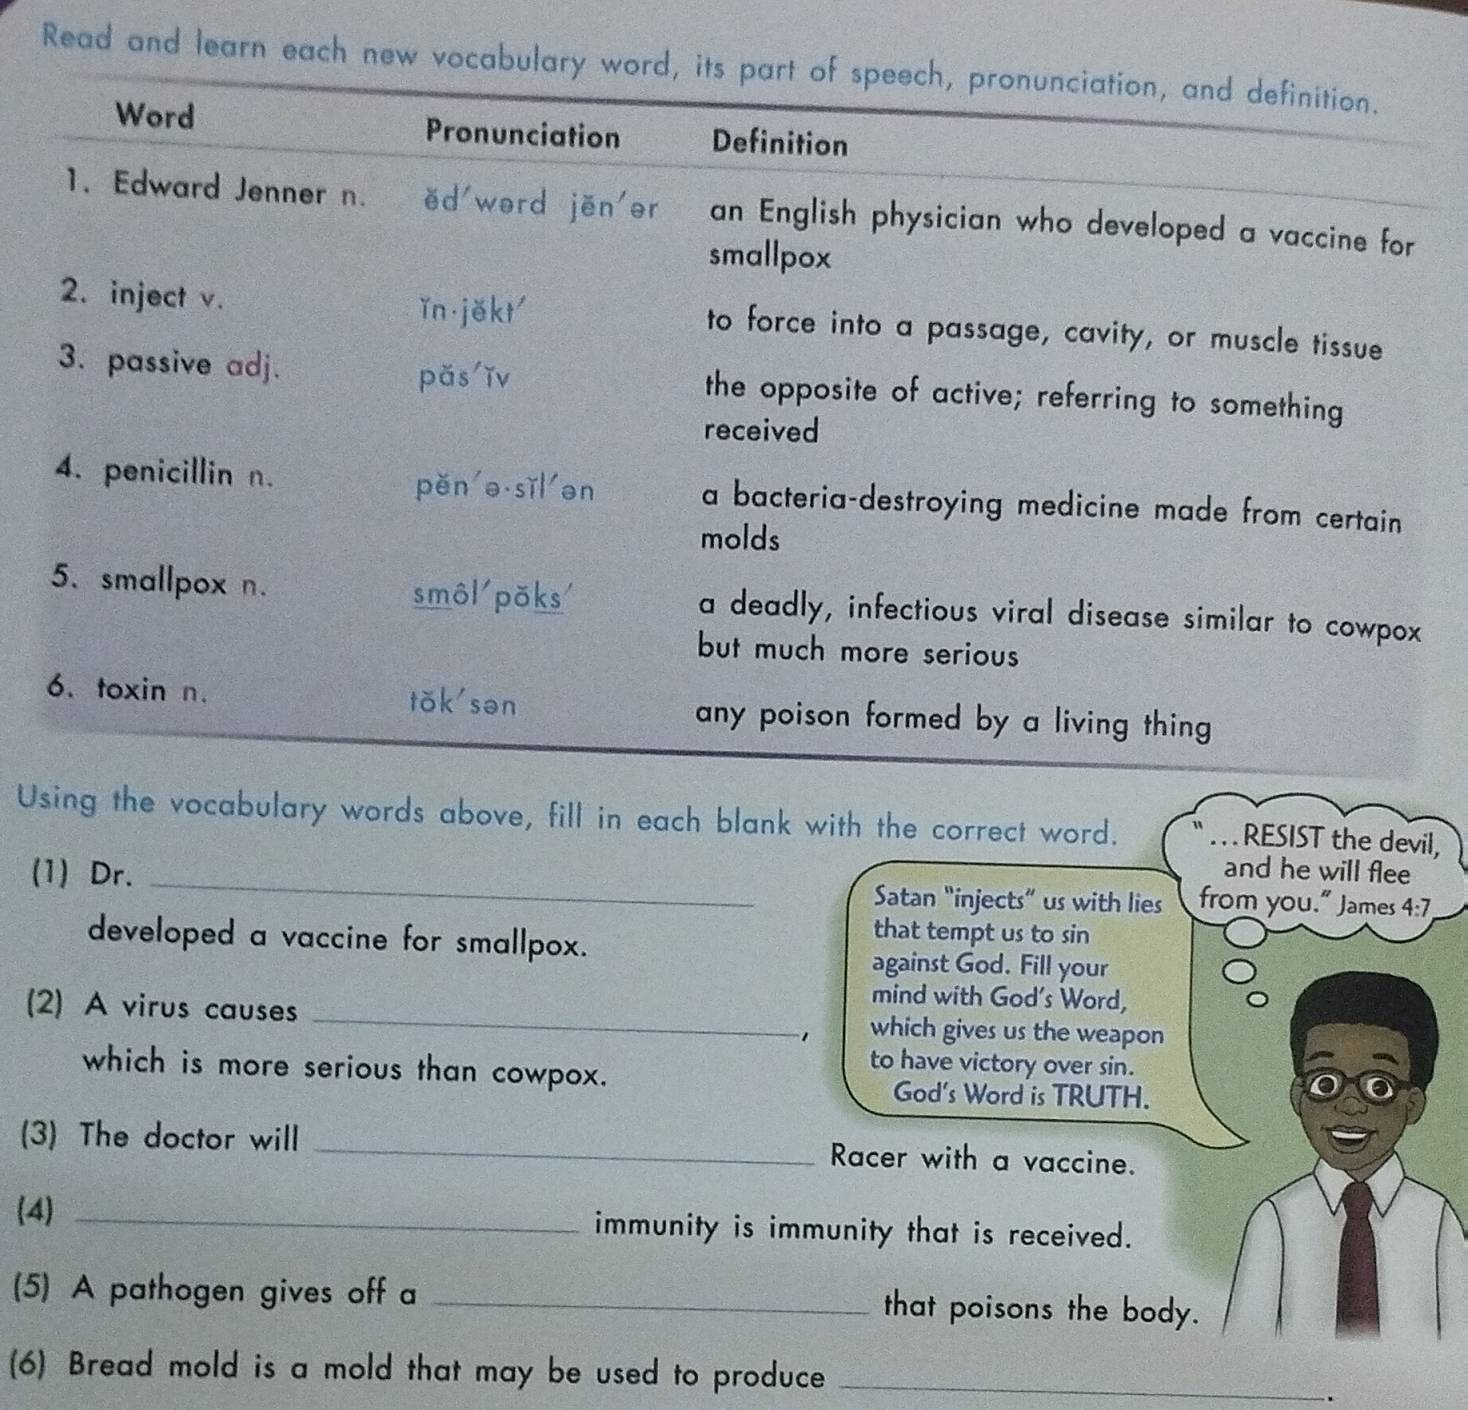 Read and learn each new vocabulary word, its part of speech, pronunciation, and definition.
Word Pronunciation Definition
1. Edward Jenner n. ĕd′wərd jĕn′ər an English physician who developed a vaccine for
smallpox
2. inject v. ĭn·jĕkt′ to force into a passage, cavity, or muscle tissue
3. passive adj. păs′ĭv the opposite of active; referring to something
received
4. penicillin n. pĕn′ə·sĭl′ən a bacteria-destroying medicine made from certain
molds
5. smallpox n. smôl′pŏks′ a deadly, infectious viral disease similar to cowpox
but much more serious
6. toxin n. tŏk′sən any poison formed by a living thing
Using the vocabulary words above, fill in each blank with the correct word.
(1) Dr. ____________________
developed a vaccine for smallpox.
(2) A virus causes ____________________,
which is more serious than cowpox.
(3) The doctor will ____________________ Racer with a vaccine.
(4) ____________________ immunity is immunity that is received.
(5) A pathogen gives off a ____________________ that poisons the body.
(6) Bread mold is a mold that may be used to produce ____________________.
Satan "injects" us with lies
that tempt us to sin
against God. Fill your
mind with God's Word,
which gives us the weapon
to have victory over sin.
God's Word is TRUTH.
"...RESIST the devil,
and he will flee
from you." James 4:7